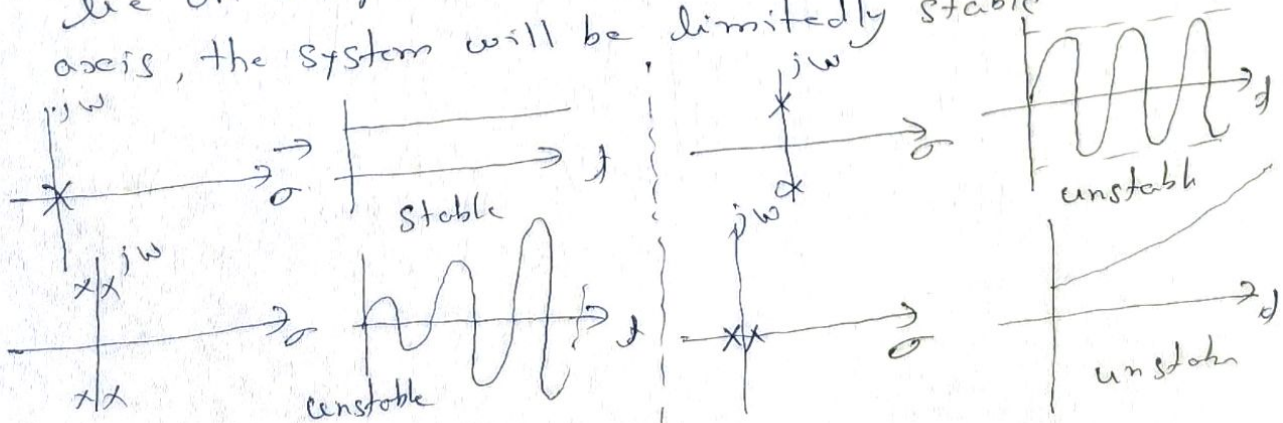 lie on
axis, the system will be limitedly stable
jω
σ
t
stable
jω
σ
t
unstable
jω
σ
t
unstable
jω
σ
t